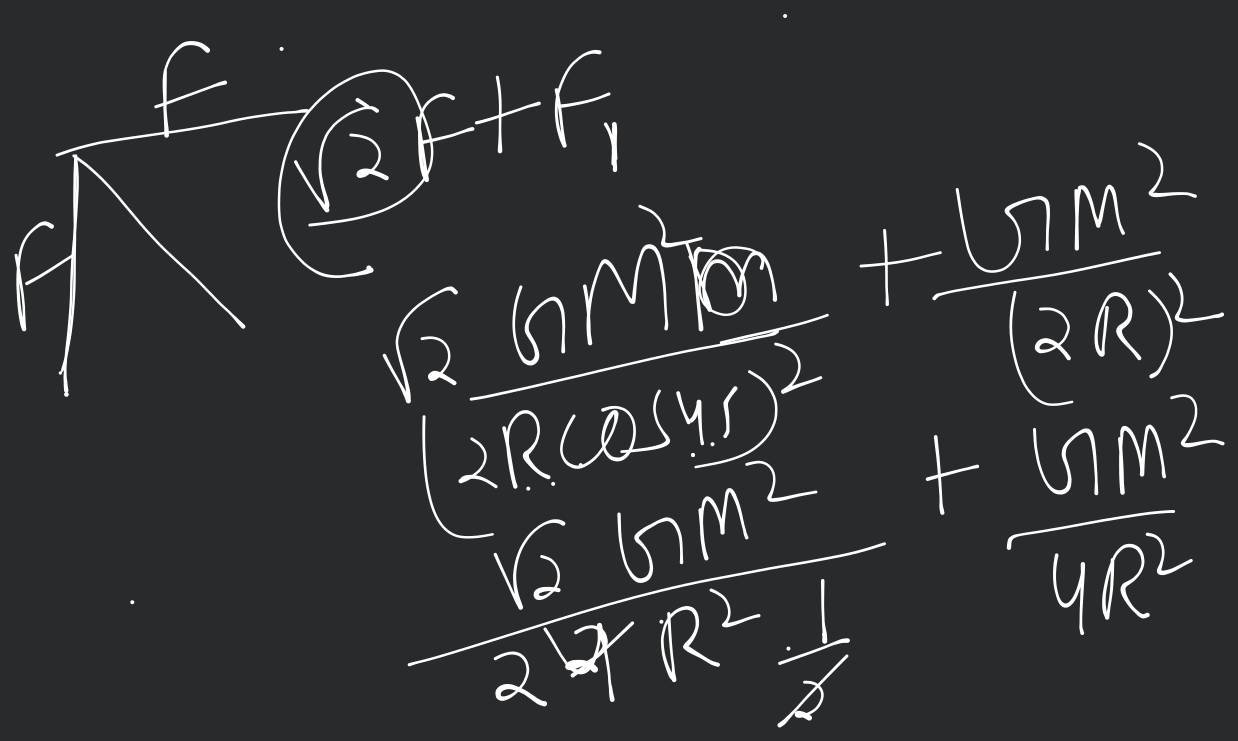 F
√2 F + F₁
F
√2 GM² / (2R cos 45)² + GM² / (2R)²
√2 GM² / 2 4 R² 1/2 + GM² / 4R²